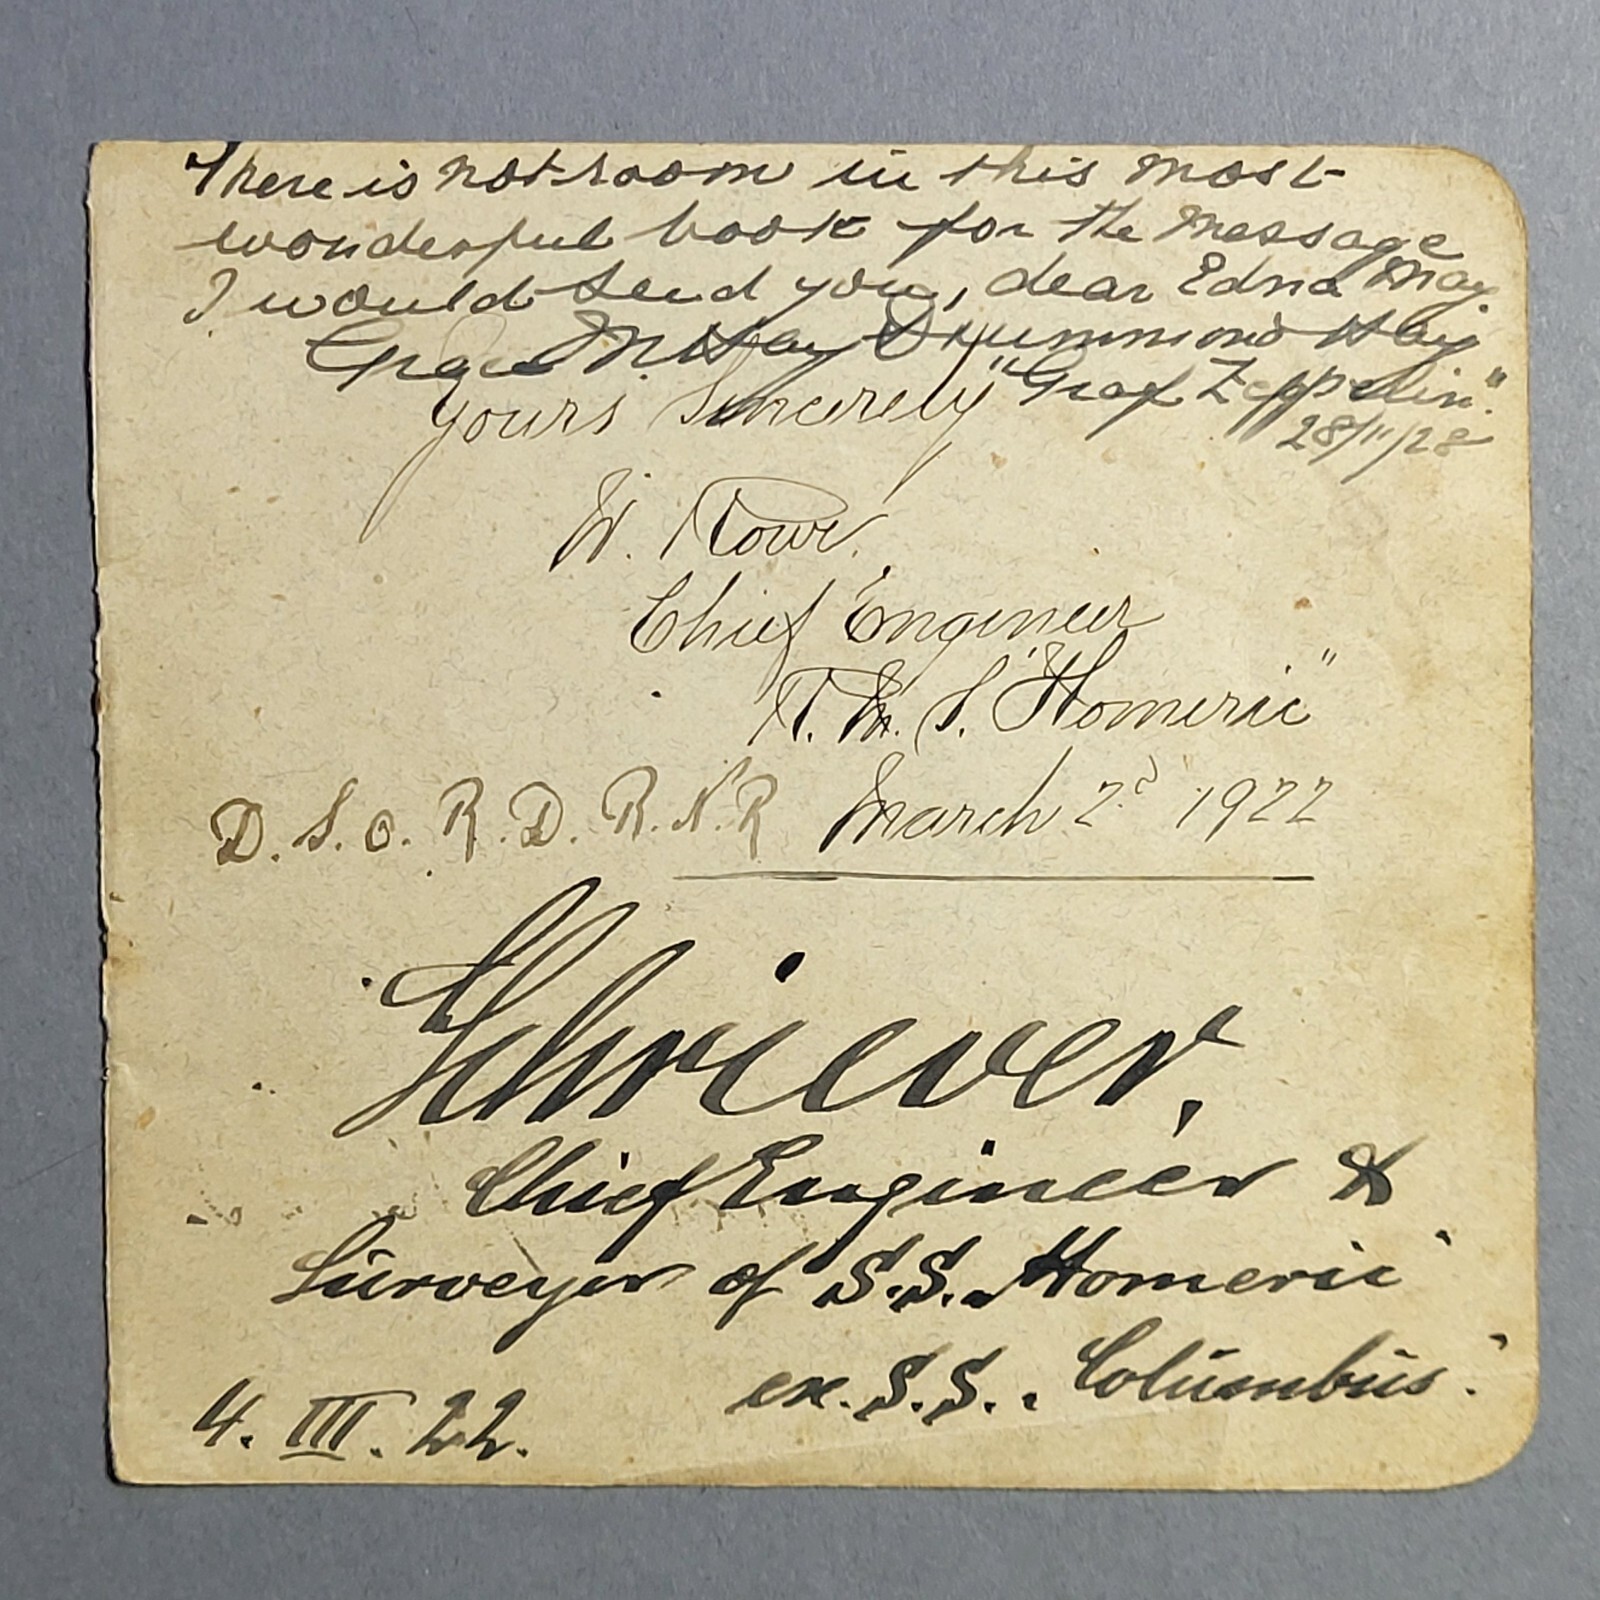 There is not room in this most
wonderful book for the message
I would send you, dear Edna May.
Grace M. Hay Drummond Hay
"Graf Zeppelin".
28/11/28
yours Sincerely
W.
Chief Engineer
S. "Homeric"
March 2d 1922
D. S. O. R. D. R. N. R
Schriever.
Chief Engineer &
Surveyor of S.S. Homeric"
ex. S.S. "Columbus".
4. III. 22.